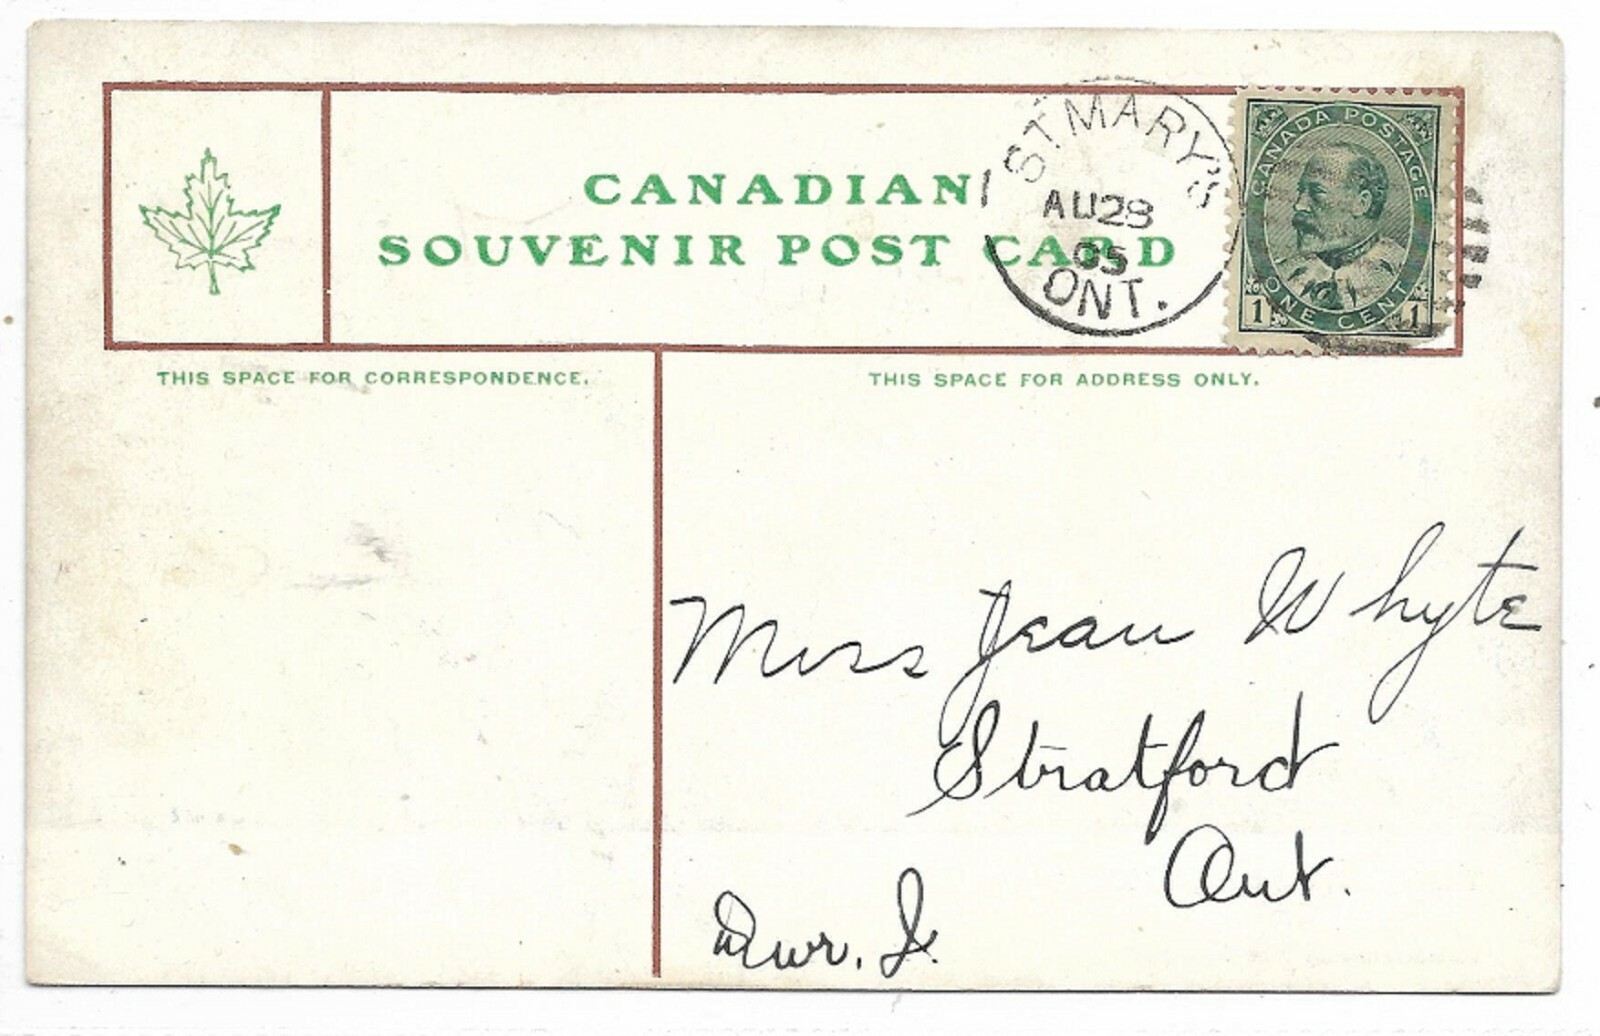 CANADIAN
SOUVENIR POST CARD
ST MARY'S
AU 28
05
ONT.
CANADA POSTAGE
ONE CENT
1 1
THIS SPACE FOR CORRESPONDENCE.
THIS SPACE FOR ADDRESS ONLY.
Miss Jean Whyte
Stratford
Ont.